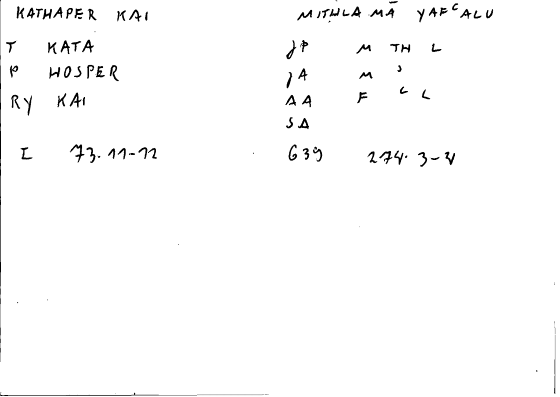 KATHAPER KAI MITHLA MĀ YAFᶜALU
T KATA JP M TH L
P HOSPER JA M ʾ
RY KAI AA F ᶜ L L
SA
I 73.11-12 G39 274.3-4